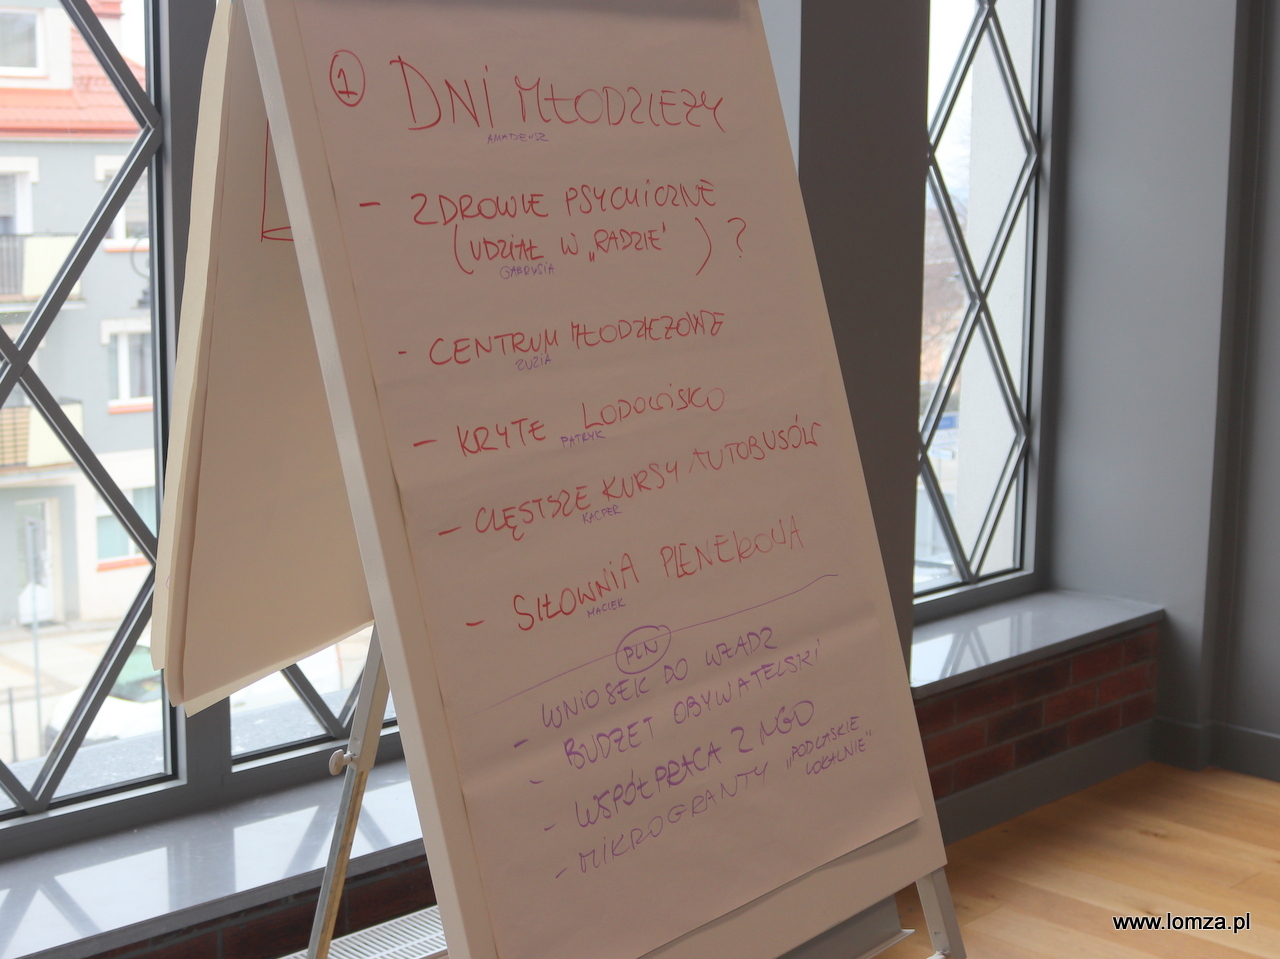 1 DNI MŁODZIEŻY
AMADEUSZ
- ZDROWIE PSYCHICZNE
(UDZIAŁ W „RADZIE") ?
GABRYSIA
- CENTRUM MŁODZIEŻOWE
ZUZIA
- KRYTE LODOWISKO
PATRYK
- CZĘSTSZE KURSY AUTOBUSÓW
KACPER
- SIŁOWNIA PLENEROWA
MACIEK
PLN
- WNIOSEK DO WŁADZ
- BUDŻET OBYWATELSKI
- WSPÓŁPRACA Z NGO
- MIKROGRANTY „PODLASKIE
LOKALNIE"
www.lomza.pl